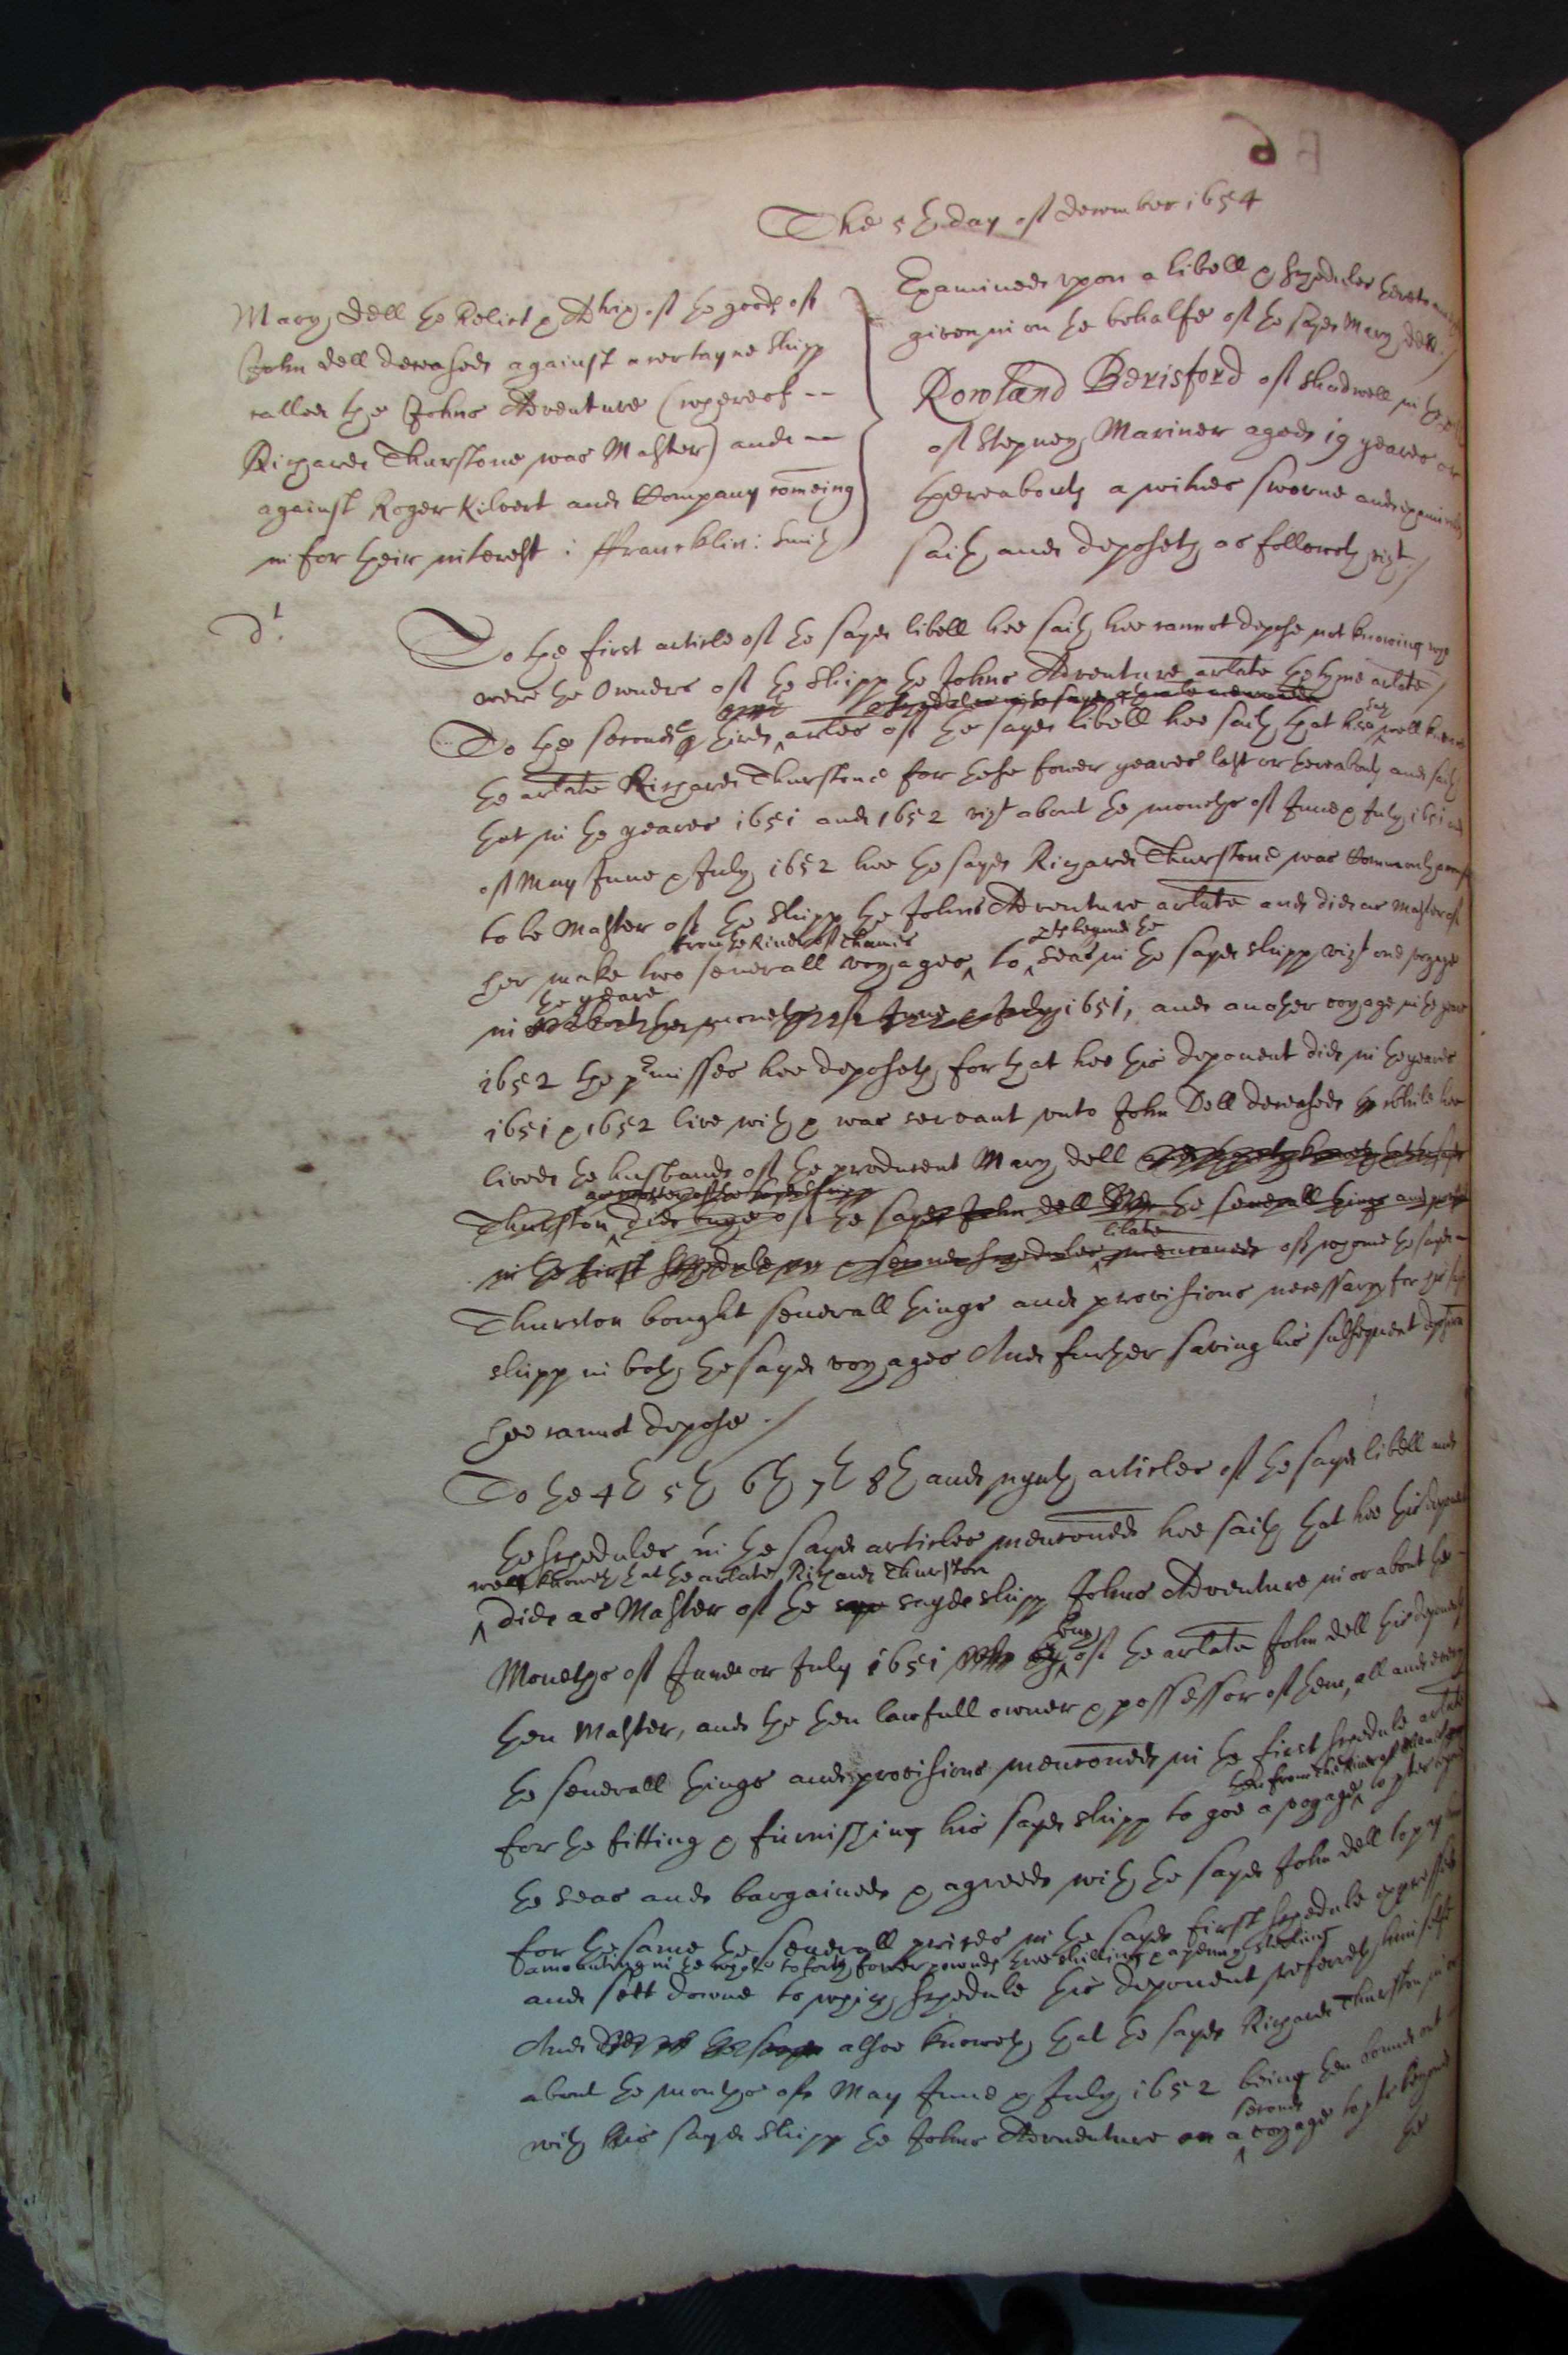 The 5th day of December 1654
Mary Dell the Relict & Adtrix of the goods of
John Dell deceased against a certayne shipp
called the Johns Adventure (whereof --
Richard Thurstone was Master) and --
against Roger Kilvert and Company comeing
in for their interest : Francklin : Smith
Examined upon a libell & schedules hereto
given in on the behalfe of the sayd Mary Dell /
Rowland Berisford of Shadwell in the
of Stepney Mariner aged 19 yeares or
thereabouts a witnes sworne and examined
saith and deposeth as followeth vizt. /
dt.
To the first article of the sayd libell hee saith hee cannot depose not knowing who
were the Owners of the shipp the Johns Adventure arlate the tyme arlate /
To the second & third artles of the sayd libell hee saith that hee well knew
the arlate Richard Thurstone for these fower yeares last or thereabouts and saith
that in the yeares 1651 and 1652 vizt about the moneths of June & July 1651 and
of May June & July 1652 hee the sayd Richard Thurstone was Commonly
to be Master of the shipp the Johns Adventure arlate and did as Master of
from the River of Thames pts beyond the
her make two severall voyages to seas in the sayd shipp vizt one voyage
the yeare
in or about the moneths of June & July 1651, and another voyage in the yeare
1652 the premisses hee deposeth for that hee this deponent did in the yeares
1651 & 1652 live with & was servant unto John Dell deceased while hee
lived the husband of the producent Mary Dell
as master of the sayd shipp
Thurston did buye of the sayd John Dell the severall things and
in the first schedule & second schedules libelate mencioned of whome the sayd
Thurston bought severall things and provisions necessary for his sayd
shipp in both the sayd voyages And further saving his subsequent deposition
hee cannot depose. /
To the 4th 5th 6th 7th 8th and nynth articles of the sayd libell and
the schedules in the sayd articles mencioned hee saith that hee this deponent
well knoweth that the arlate Richard Thurston
did as Master of the say sayd shipp Johns Adventure in or about the
Moneths of June or July 1651 buy of the arlate John Dell this deponents
then Master, and the then lawfull owner & possessor of them, all and every
the severall things and provisions mencioned in the first schedule arlate
then from the River of Thames
for the fitting & furnishing his sayd shipp to goe a voyage to ptes beyond
the seas and bargained & agreed with the sayd John Dell to pay him
for the same the severall prices in the sayd first schedule expressed
amounting in the whole to forty fower pounds five shillings & a penny sterling
and sett downe to which schedule this deponent referreth himselfe
And alsoe knoweth that the sayd Richard Thurston in or
about the moneths of May June & July 1652 being then bound out
second
with his sayd shipp the Johns Adventure on a voyage to pts beyond
the